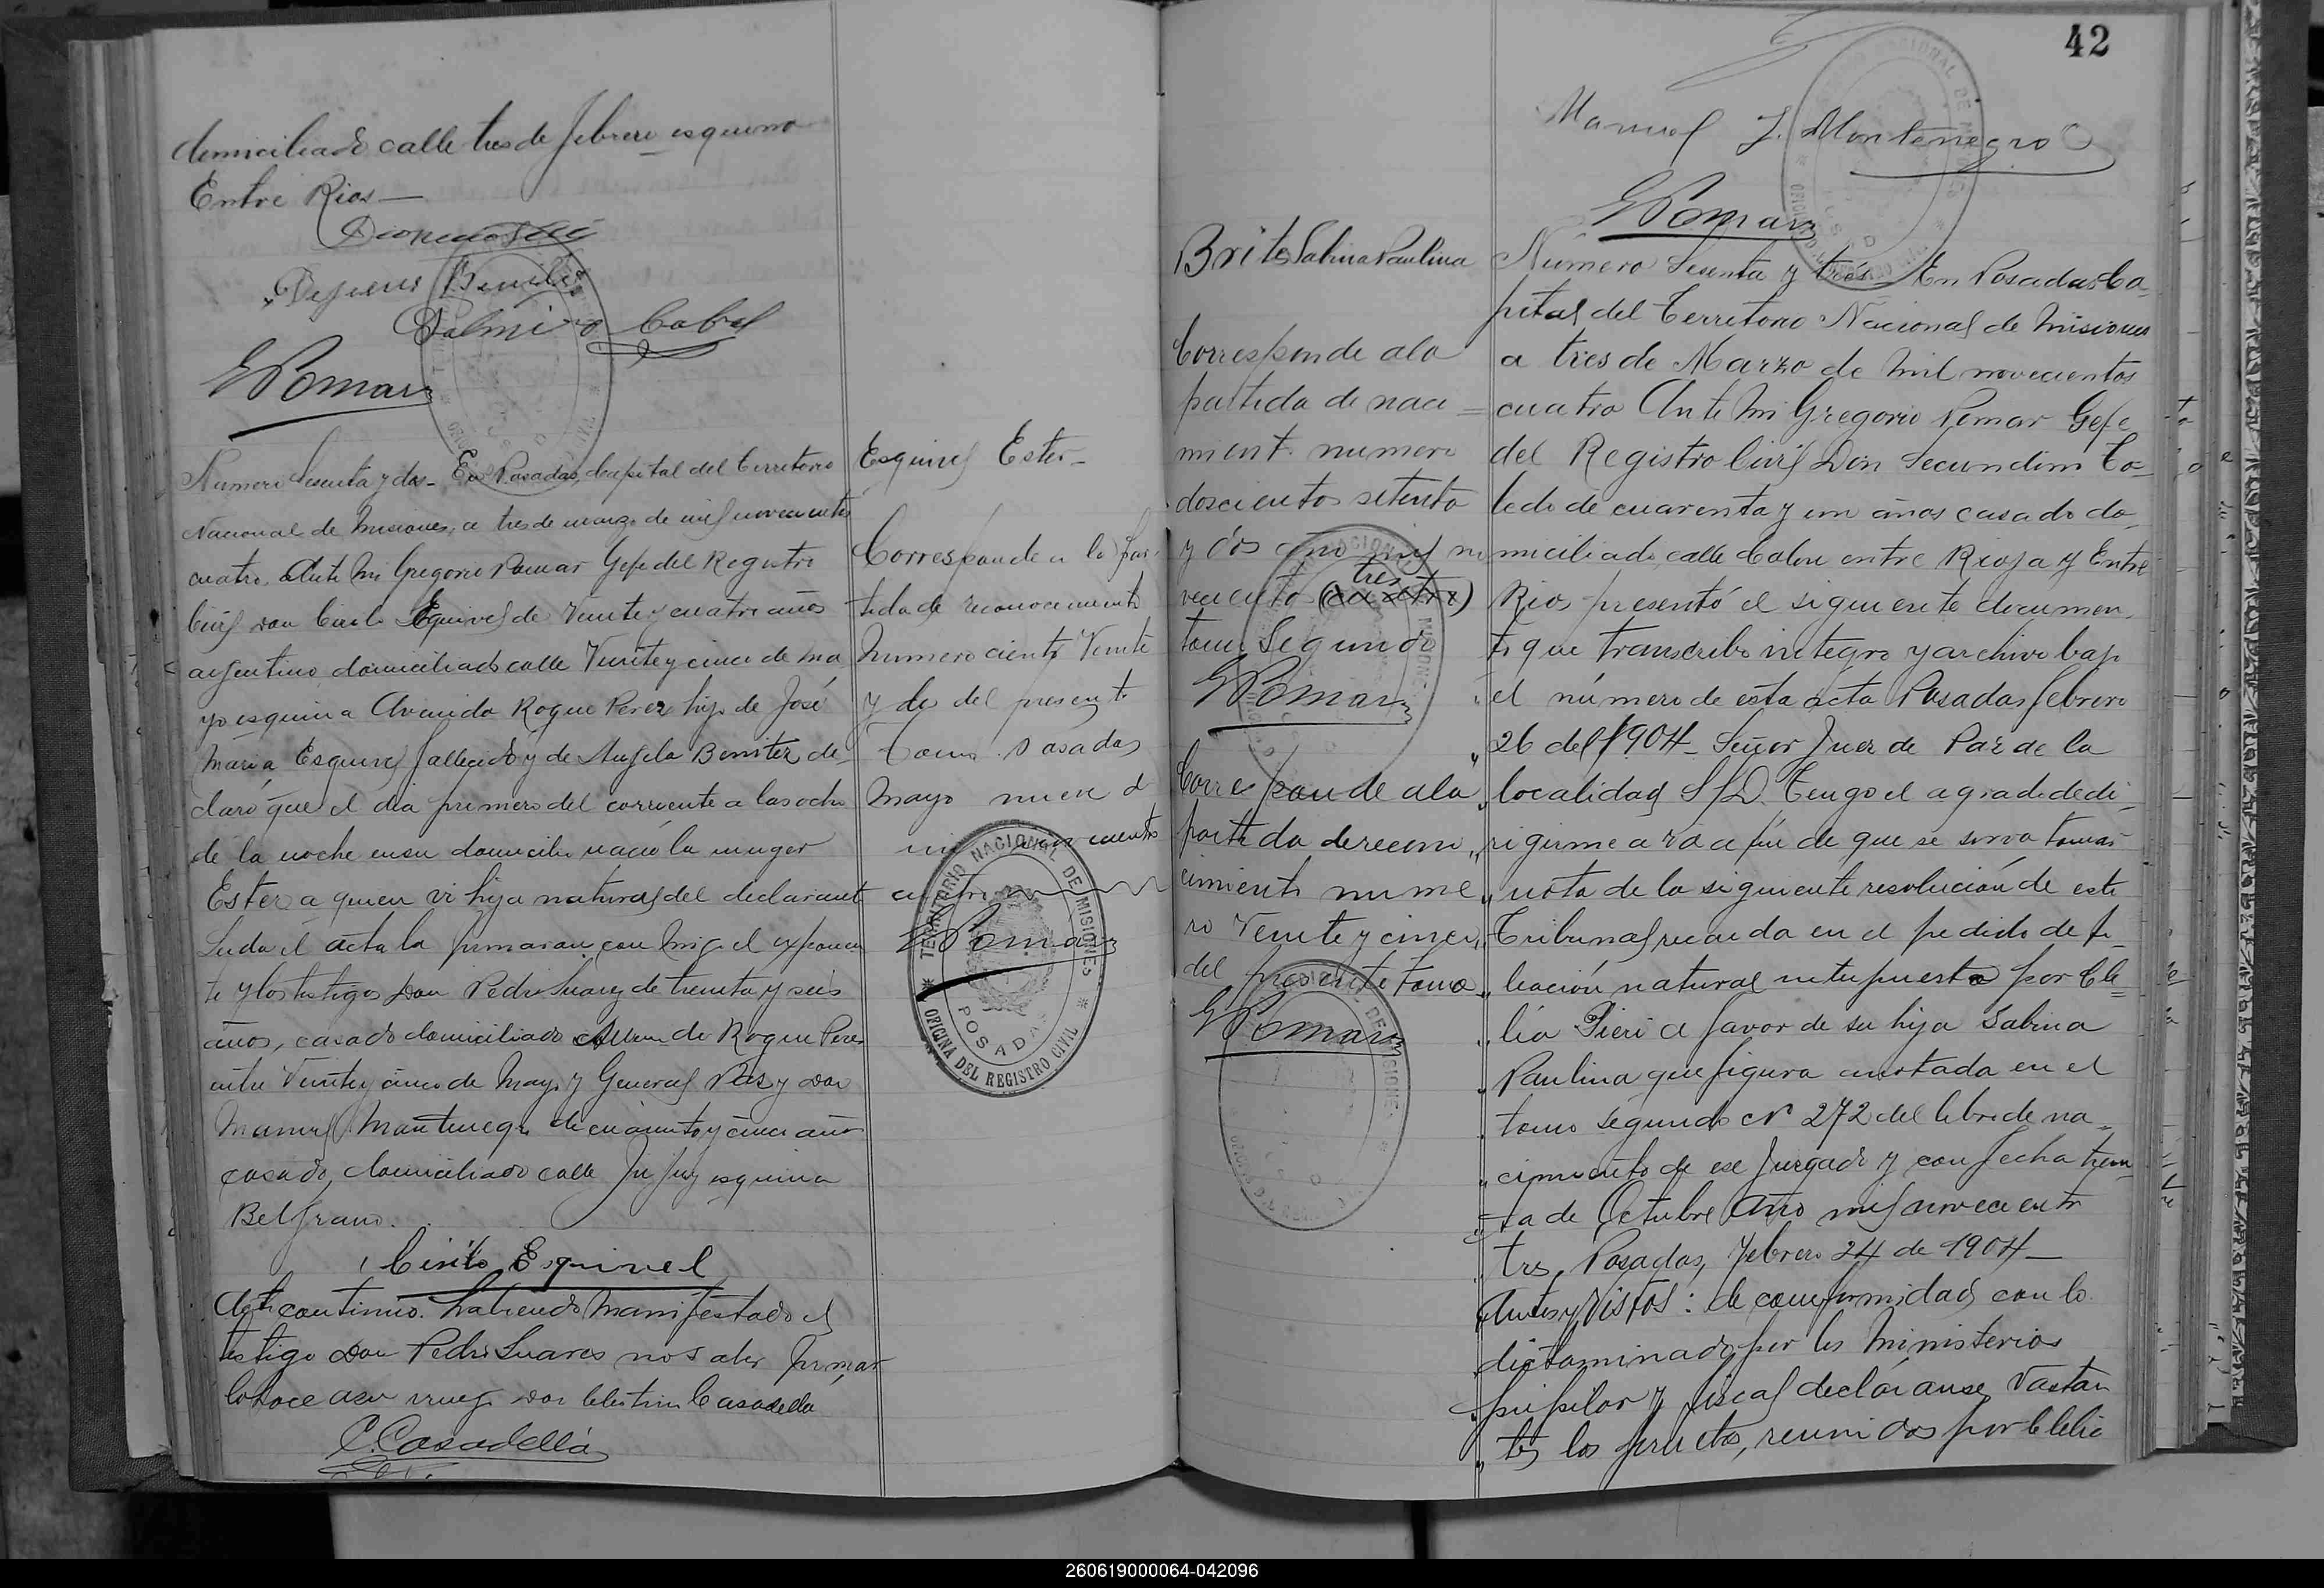 domiciliado calle tres de febrero esquina
Entre Rios —
Palmiro Cabral
GPomar
Numero Sesenta y dos - En Posadas, Capital del Territorio
Nacional de Misiones, a tres de marzo de mil novecientos
cuatro. Ante Mi Gregorio Pomar Gefe del Registro
Civil don Cirilo Esquivel de Veinte y cuatro años
argentino domiciliado calle Veinte y cinco de ma
yo esquina Avenida Roque Perez hijo de José
Maria Esquivel fallecido y de Angela Benitez de
claró que el dia primero del corriente a las ocho
de la noche en su domicilio nació la muger
Ester a quien vi hija natural del declarante
Leida el acta la firmaron con migo el exponen
te y los testigos Don Pedro Suarez de treinta y seis
años, casado domiciliado de Roque Perez
entre Veinte y cinco de Mayo y General Paz y Don
Manuel Montenegro de cuarenta y cinco años
casado, domiciliado calle Jujuy esquina
Belgrano.
Cirilo Esquivel
continuo. habiendo Manifestado el
testigo Don Pedro Suares no saber firmar
lo hace a su ruego Don Celestino Casadella
C. Casadellá
Esquivel Ester -
Corresponde a la par
tida de reconocimiento
Numero ciento Veinte
y dos del presente
Tomo. Posadas
Mayo nueve d
mil novecientos
cuatro
GPomar
TERRITORIO NACIONAL DE MISIONES
POSADAS
OFICINA DEL REGISTRO CIVIL
42
Manuel J. Montenegro
GPomar
Brites Sabina Paulina
Corresponde a la
partida de naci =
miento numero
doscientos setenta
y dos año mil no
tres
vecientos (cuatro)
tomo Segundo
GPomar
Corresponde a la
partida de recono
cimiento nume
ro Veinte y cinco
del presente tomo
GPomar
Número Sesenta y tres En Posadas Ca
pital del Territorio Nacional de Misiones
a tres de Marzo de mil novecientos
cuatro Ante Mi Gregorio Pomar Gefe
del Registro Civil Don Secundino To
ledo de cuarenta y un años casado do
miciliado calle Colon entre Rioja y Entre
Rios presentó el siguiente documen
to que transcribo integro y archivo bajo
el número de esta acta Posadas febrero
26 del 1904 - Señor Juez de Paz de la
localidad S/D. Tengo el agrado de di
rigirme a Vd a fin de que se sirva tomar
nota de la siguiente resolución de este
Tribunal recaida en el pedido de fi
liación natural interpuesta por Cle=
lia Pieri a favor de su hija Sabina
Paulina que figura anotada en el
tomo segundo Nº 272 del libro de na
cimiento de ese Juzgado y con fecha trein
=ta de Octubre Año mil novecientos
tres, Posadas, Febrero 24 de 1904 —
Autos y Vistos: de conformidad con lo
dictaminado por los Ministerios
pupilar y fiscal declóranse Vastan
tes los reunidos por Clelia
260619000064-042096